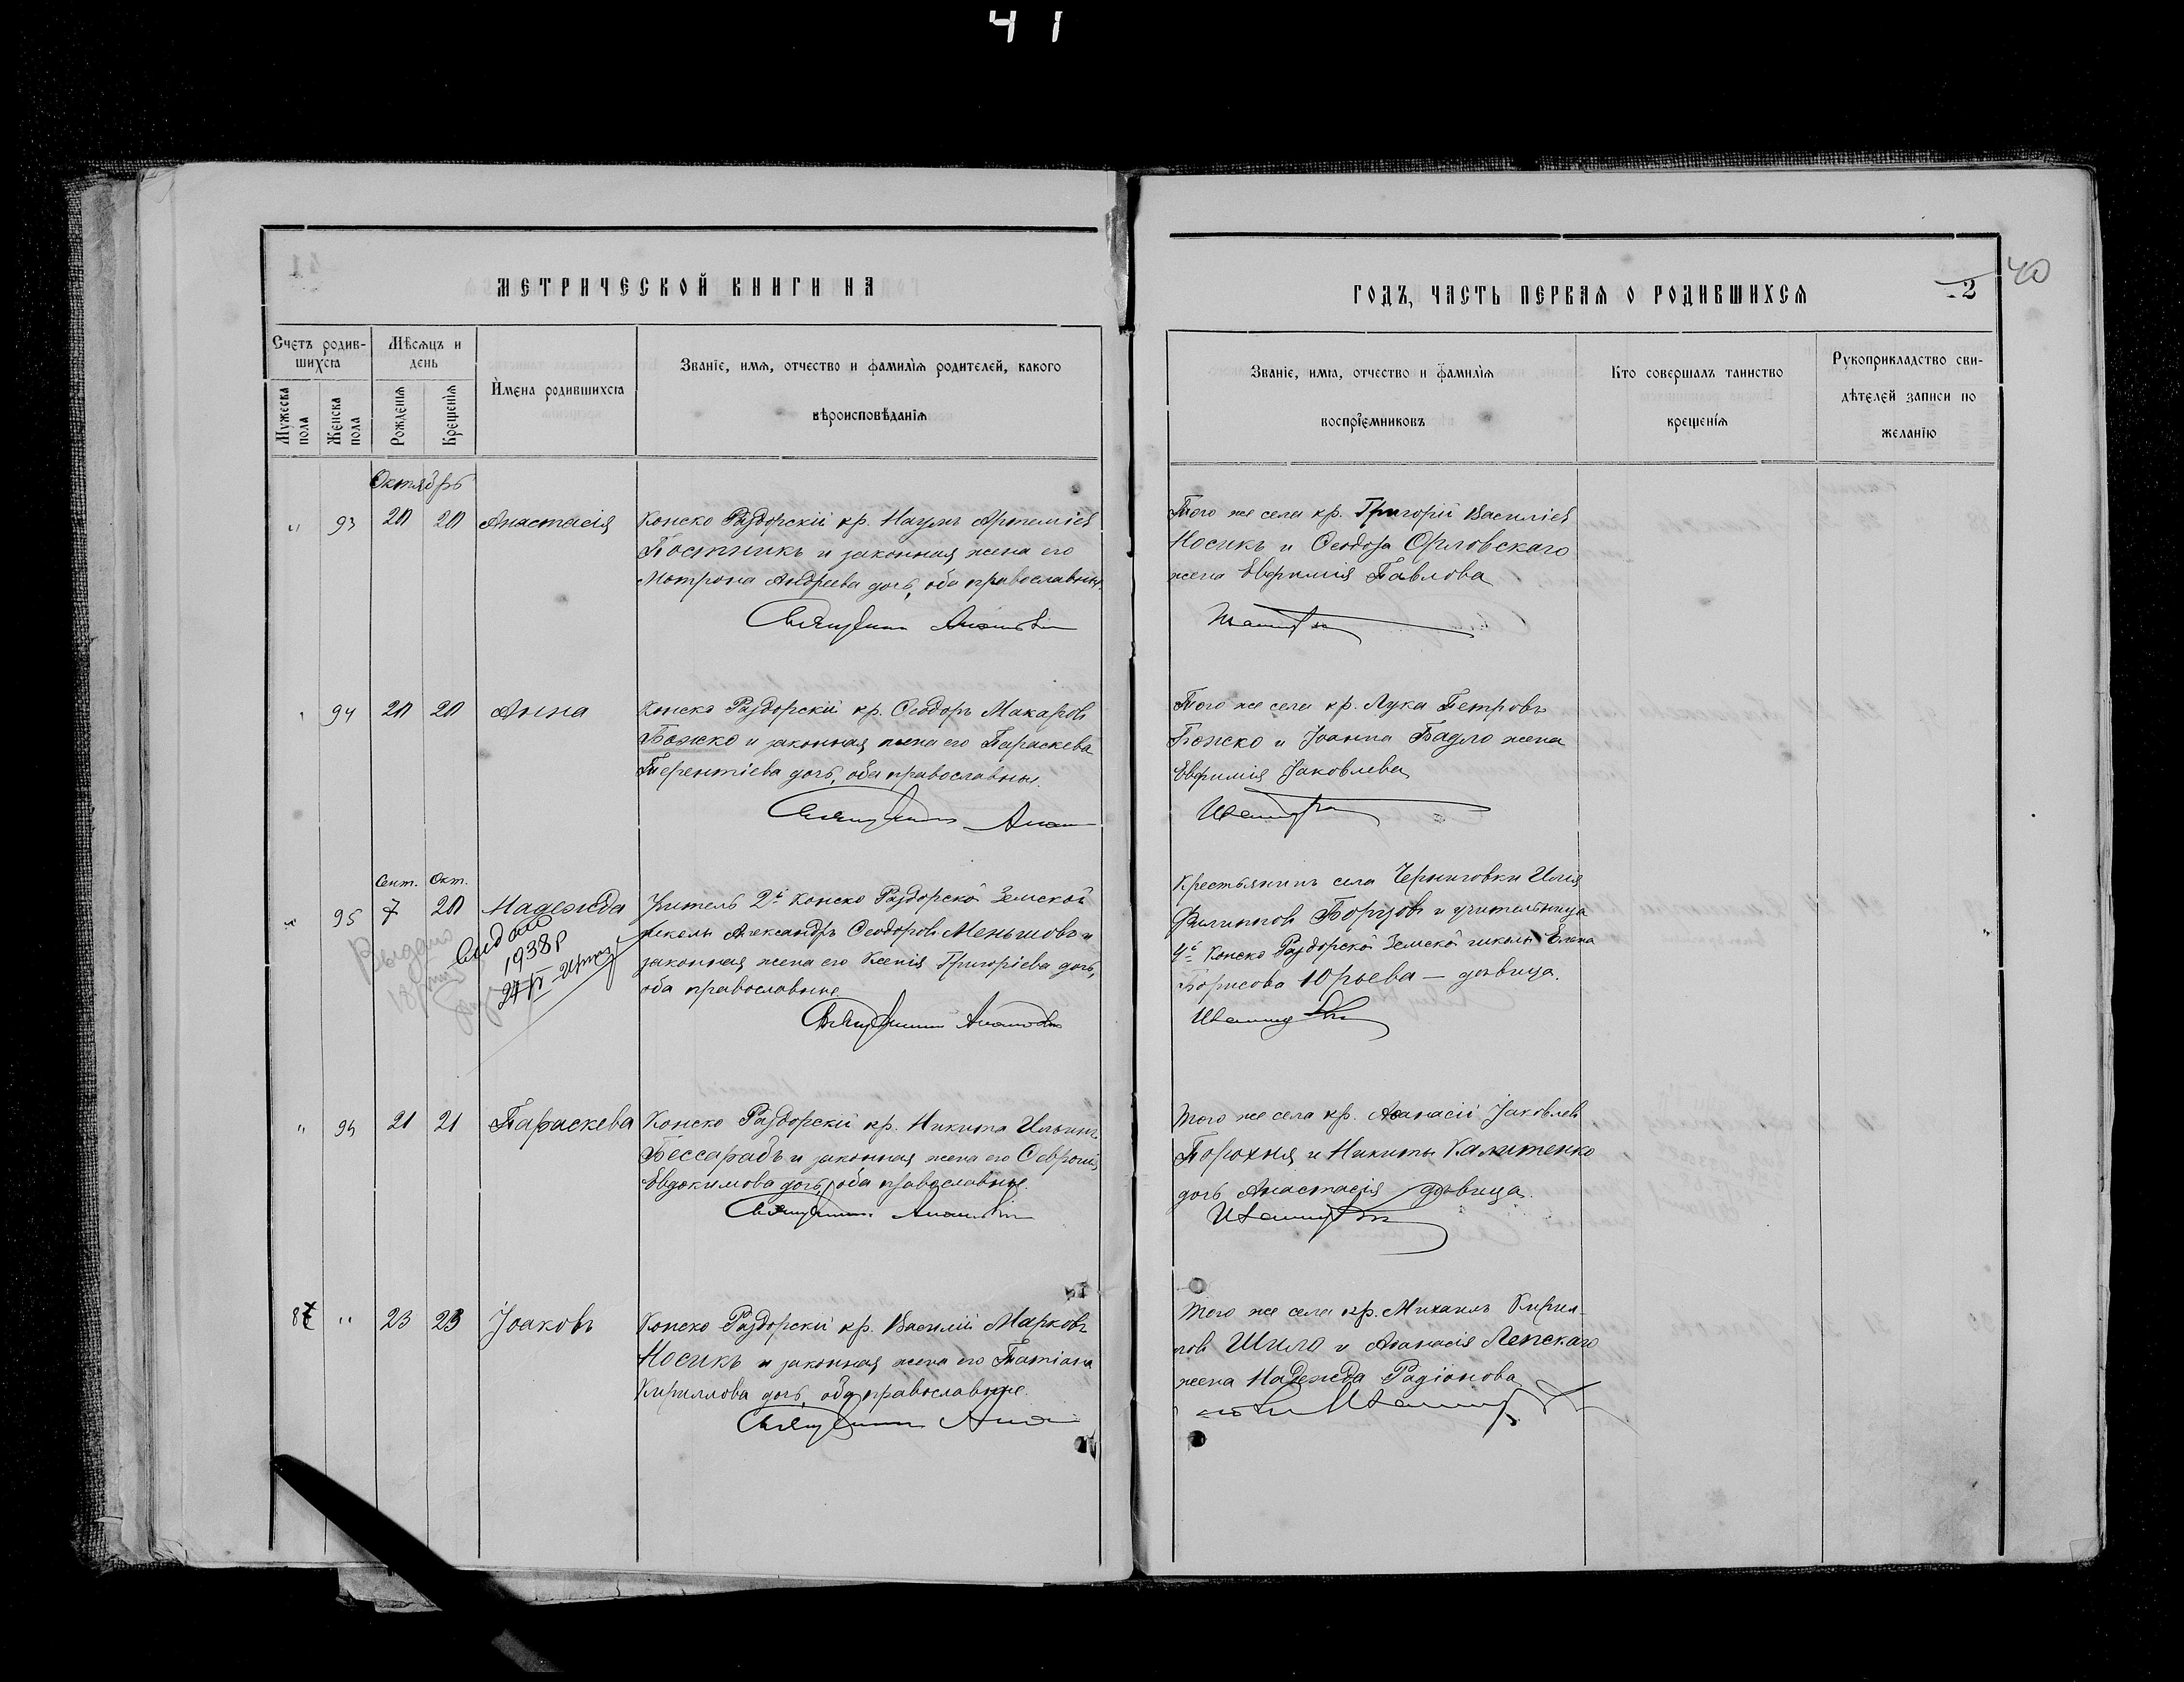 41
МЕТРИЧЕСКОЙ КНИГИ НА
ГОДЪ, ЧАСТЬ ПЕРВАЯ О РОДИВШИХСЯ
2
40
Счетъ родив-
шихся
Мужеска пола
Женска пола
Мѣсяцъ и
день
Рожденія
Крещенія
Имена родившихся
Званіе, имя, отчество и фамилія родителей, какого
вѣроисповѣданія
Званіе, имя, отчество и фамилія
воспріемниковъ
Кто совершалъ таинство
крещенія
Рукоприкладство сви-
дѣтелей записи по
желанію
Октябрь
" 93 20 20 Анастасія
Конско Раздорскій кр. Наумъ Артеміевъ
Постникъ и законная жена его
Мотрона Андреева дочь, оба православны.
Того же села кр. Григорій Василіев
Носикъ и Ѳеодора Орловскаго
жена Евфимія Павлова
94 20 20 Анна
Конско Раздорскій кр. Ѳеодоръ Макаровъ
Божко и законная жена его Параскева
Терентіева дочь, оба православны.
Того же села кр. Лука Петровъ
Божко и Іоанна Бадло жена
Евфимія Іаковлева
Сент. Окт.
" 95 7 20 Надежда
Учитель 2й Конско Раздорской Земской
школы Александръ Ѳеодоровъ Меньшовъ и
законная жена его Ксенія Григоріева дочь,
оба православные.
Крестьянинъ села Черниговки Илія
Филиповъ Борцовъ и учительница
4й Конско Раздорской Земской школы Елена
Борисова Юрьева — дѣвица.
Выдано
1938р
" 96 21 21 Параскева
Конско Раздорскій кр. Никита Ильинъ
Бессарабъ и законная жена его Ѳевронія
Евдокимова дочь, оба православные.
Того же села кр. Аѳанасій Іаковлев
Порохня и Никиты Калитенко
дочь Анастасія дѣвица.
87 " 23 23 Іаковъ
Конско Раздорскій кр. Василій Марковъ
Носикъ и законная жена его Татіана
Кириллова дочь, оба православные.
Того же села кр. Михаилъ Кирил-
ловъ Шило и Аѳанасія Ленскаго
жена Надежда Радіонова